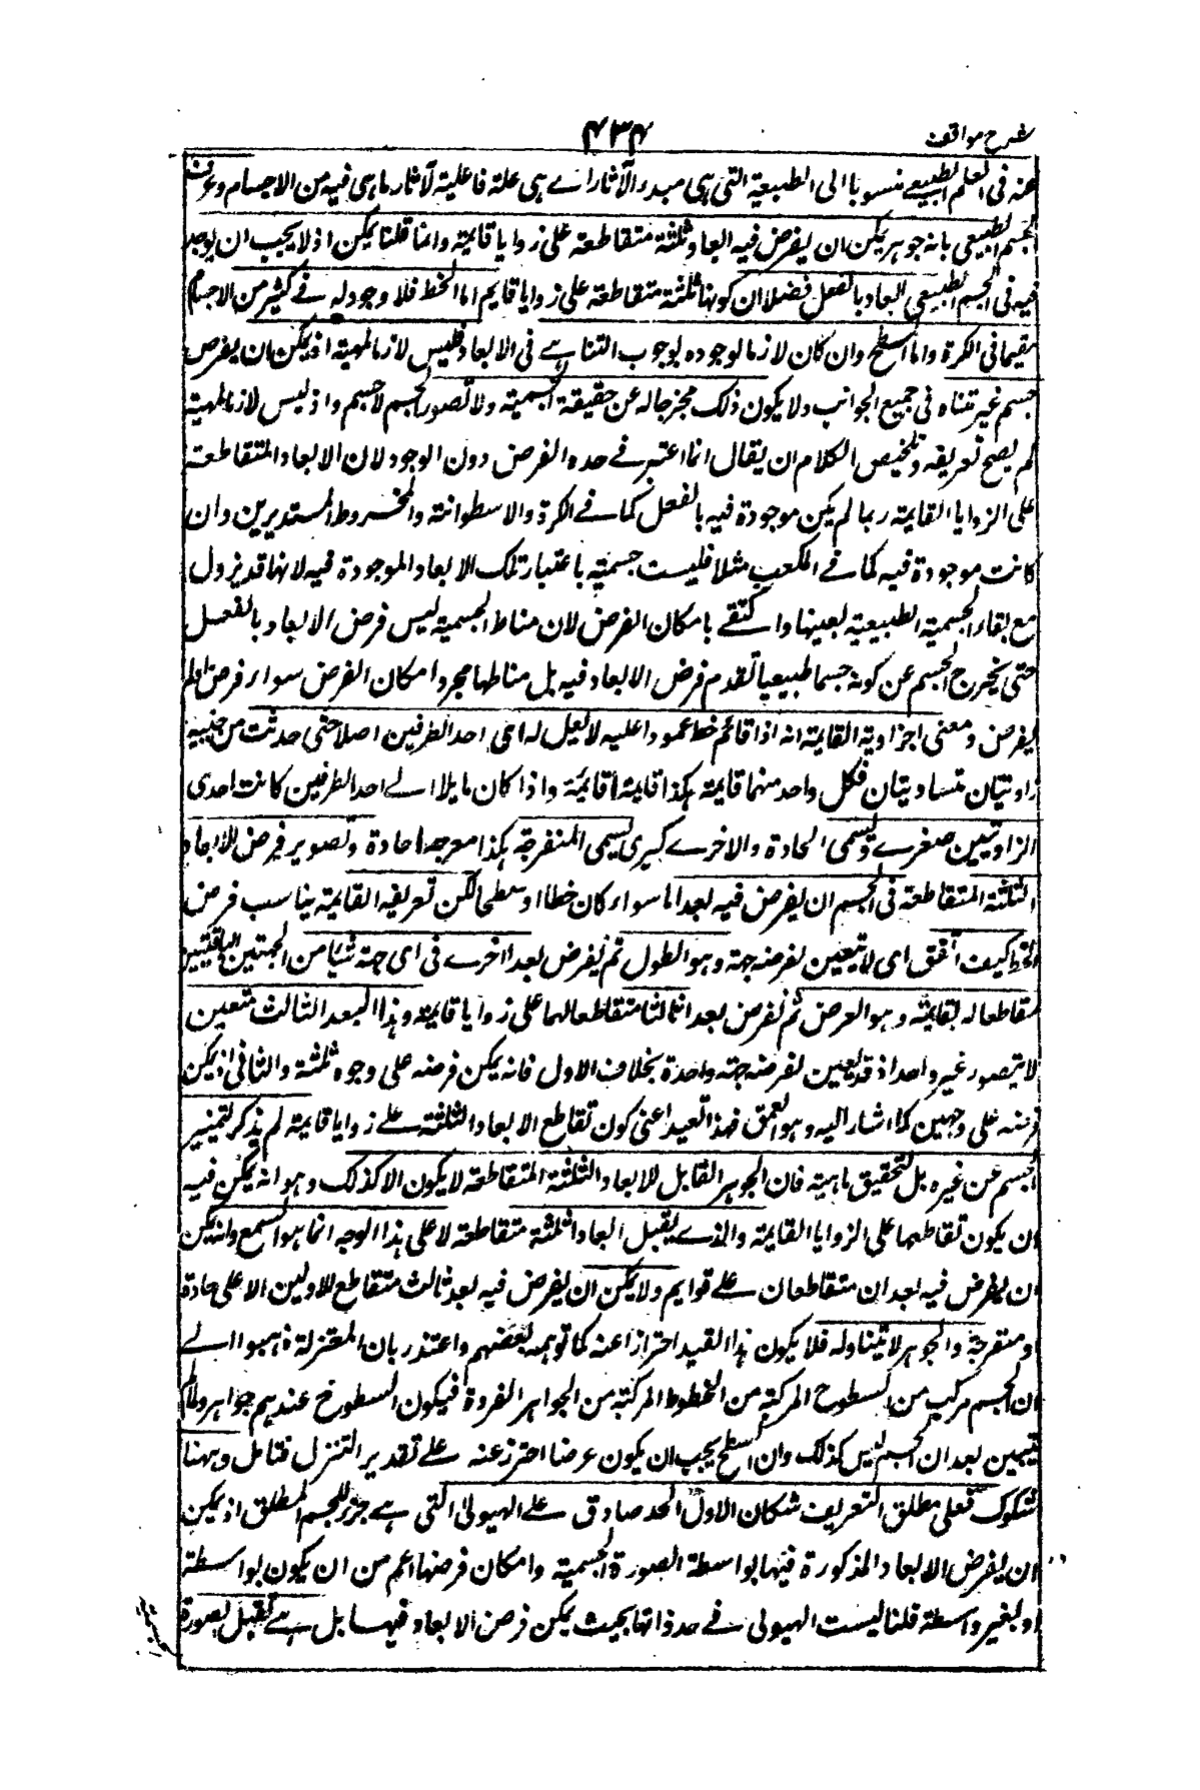 شرح مواقف
۴۳۴
عنه فى العلم الطبيعے منسوبا الى الطبيعية التى هى مبدء الآثار اے هى علة فاعلية لآثار ما هى فيه من الاجسام وعرف
الجسم الطبيعى بانه جوهر يمكن ان يفرض فيه ابعاد ثلثة متقاطعة على زوايا قايمة وانما قلنا يمكن اذ لا يجب ان يوجد
فيه فى الجسم الطبيعى ابعاد بالفعل فضلا ان كونها ثلثة متقاطعة على زوايا قايم اما الخط فلا وجود له فے كثير من الاجسام
كما فى الكرة واما السطح وان كان لازما لوجوده لوجوب التناهے فى الابعاد فليس لازما لمهيته اذ يمكن ان يفرض
جسم غير متناه فى جميع الجوانب ولا يكون ذلك مخرجا له عن حقيقة الجسمية ولا تصور الجسم لا جسم واذ ليس لازما لمهية
لم يصح تعريفه وتلخيص الكلام ان يقال انما اعتبر فے حده الفرض دون الوجود لان الابعاد المتقاطعة
على الزوايا القايمة ربما لم يكن موجودة فيه بالفعل كما فے الكرة والاسطوانة والمخروط المستديرين وان
كانت موجودة فيه كما فے المكعب مثلا فليست جسميته باعتبار تلك الابعاد الموجودة فيه لانها قد يزول
مع بقاء الجسمية الطبيعية بعينها واكتفے بامكان الفرض لان مناط الجسمية ليس فرض الابعاد بالفعل
حتى يخرج الجسم عن كونه جسما طبيعيا لعدم فرض الابعاد فيه بل مناطها مجرد امكان الفرض سواء فرض او لم
يفرض ومعنى الزاوية القايمة انه اذا قائم خط عمودا عليه لا ميل له اى احد الطرفين اصلا حتى حدثت من جنبيه
زاويتان متساويتان فكل واحد منهما قايمة هكذا قايمة اقايمة واذا كان مايلا الے احد الطرفين كانت احدى
الزاويتين صغرے وتسمى الحادة والاخرے كبرى تسمى المنفرجة هكذا منفرجة احادة وتصوير فرض الابعاد
الثلثة المتقاطعة فى الجسم ان يفرض فيه بعد اما سواء كان خطا او سطحا لكن تعريفه القايمة يناسب فرض
الخط كيف اتفق اى لا يتعين لفرضه جهة وهو الطول ثم يفرض بعدا اخرے فى اى جهة شئنا من الجهتين الباقيتين
متقاطعا له بقايمة وهو العرض ثم يفرض بعدا ثالثا متقاطعا لهما على زوايا قايمة وهذا البعد الثالث متعين
لا يتصور غير واحد اذ قد يعين لفرضه جهة واحدة بخلاف الاول فانه يمكن فرضه على وجوه ثلثة والثانى اذ يمكن
فرضه على وجهين كما اشار اليه وهو العمق فهذا القيد اعنى كون تقاطع الابعاد الثلثة علے زوايا قايمة لم يذكر لتمييز
الجسم عن غيره بل لتحقيق ماهيته فان الجوهر القابل للابعاد الثلثة المتقاطعة لا يكون الا كذلك وهو انه يمكن فيه
ان يكون تقاطعها على الزوايا القايمة والذے يقبل ابعادا ثلثة متقاطعة لا على هذا الوجه انما هو السطح وانه يمكن
ان يفرض فيه بعدان متقاطعان علے قوايم ولا يمكن ان يفرض فيه بعد ثالث متقاطع للاولين الا على حادة
ومنفرجة والجوهر لا يتناوله فلا يكون هذا القيد احترازا عنه كما توهمه بعضهم واعتذر بان المعتزلة ذهبوا الے
ان الجسم مركب من السطوح المركبة من الخطوط المركبة من الجواهر الفردة فيكون السطوح عندهم جواهر ولم
يتبين بعد ان الجسم ليس كذلك وان السطح يجب ان يكون عرضا احترز عنه علے تقدير التنزل فتامل وههنا
شكوك فعلى مطلق التعريف شكان الاول الحد صادق علے الهيولى التى هے جزء للجسم المطلق اذ يمكن
ان يفرض الابعاد المذكورة فيها بواسطة الصورة الجسمية وامكان فرضها اعم من ان يكون بواسطة
او بغير واسطة قلنا ليست الهيولى فے حد ذاتها بحيث يمكن فرض الابعاد فيها بل هے تقبل الصورة